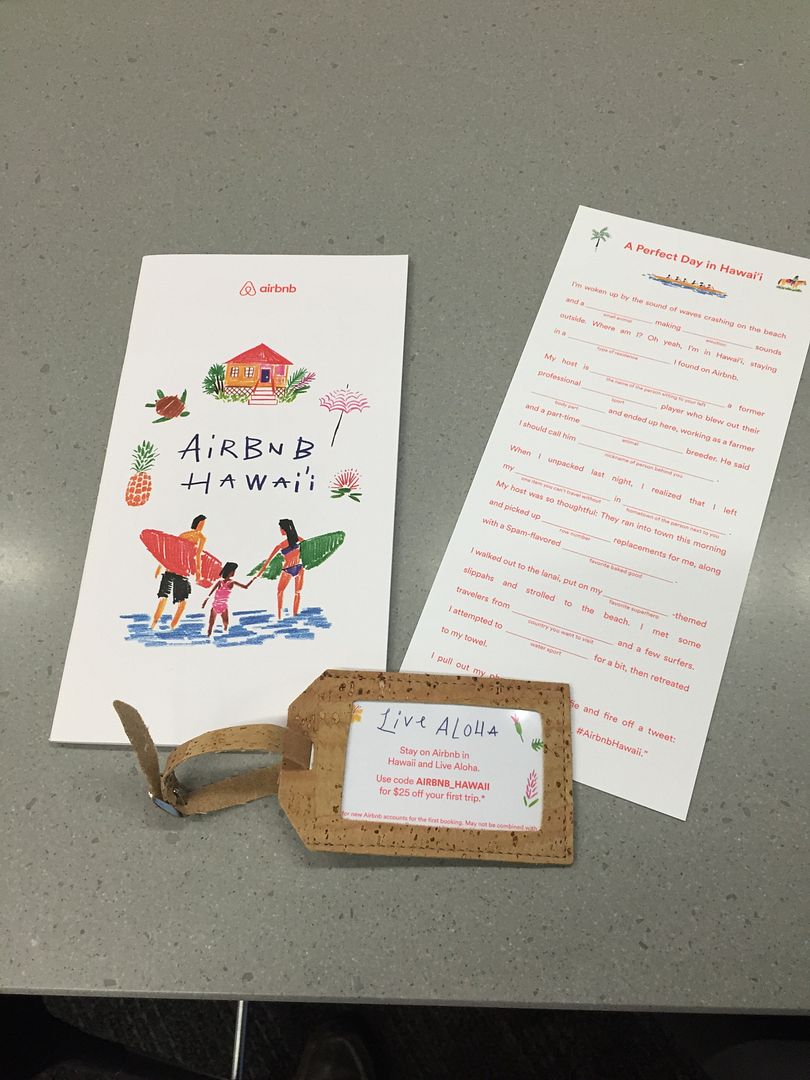 airbnb
AiRBNB
HAWAi'i
A Perfect Day in Hawai'i
I'm woken up by the sound of waves crashing on the beach
and a making sounds
small animal emotion
outside. Where am I? Oh yeah, I'm in Hawai'i, staying
in a I found on Airbnb.
type of residence
My host is a former
the name of the person sitting to your left
professional player who blew out their
sport
and ended up here, working as a farmer
body part
and a part-time breeder. He said
animal
I should call him .
nickname of person behind you
When I unpacked last night, I realized that I left
my in .
one item you can't travel without hometown of the person next to you
My host was so thoughtful: They ran into town this morning
and picked up replacements for me, along
row number
with a Spam-flavored .
favorite baked good
I walked out to the lanai, put on my -themed
favorite superhero
slippahs and strolled to the beach. I met some
travelers from and a few surfers.
country you want to visit
I attempted to for a bit, then retreated
water sport
to my towel.
I pull out my fie and fire off a tweet:
#AirbnbHawaii."
Live ALOHA
Stay on Airbnb in
Hawaii and Live Aloha.
Use code AIRBNB_HAWAII
for $25 off your first trip.*
for new Airbnb accounts for the first booking. May not be combined with